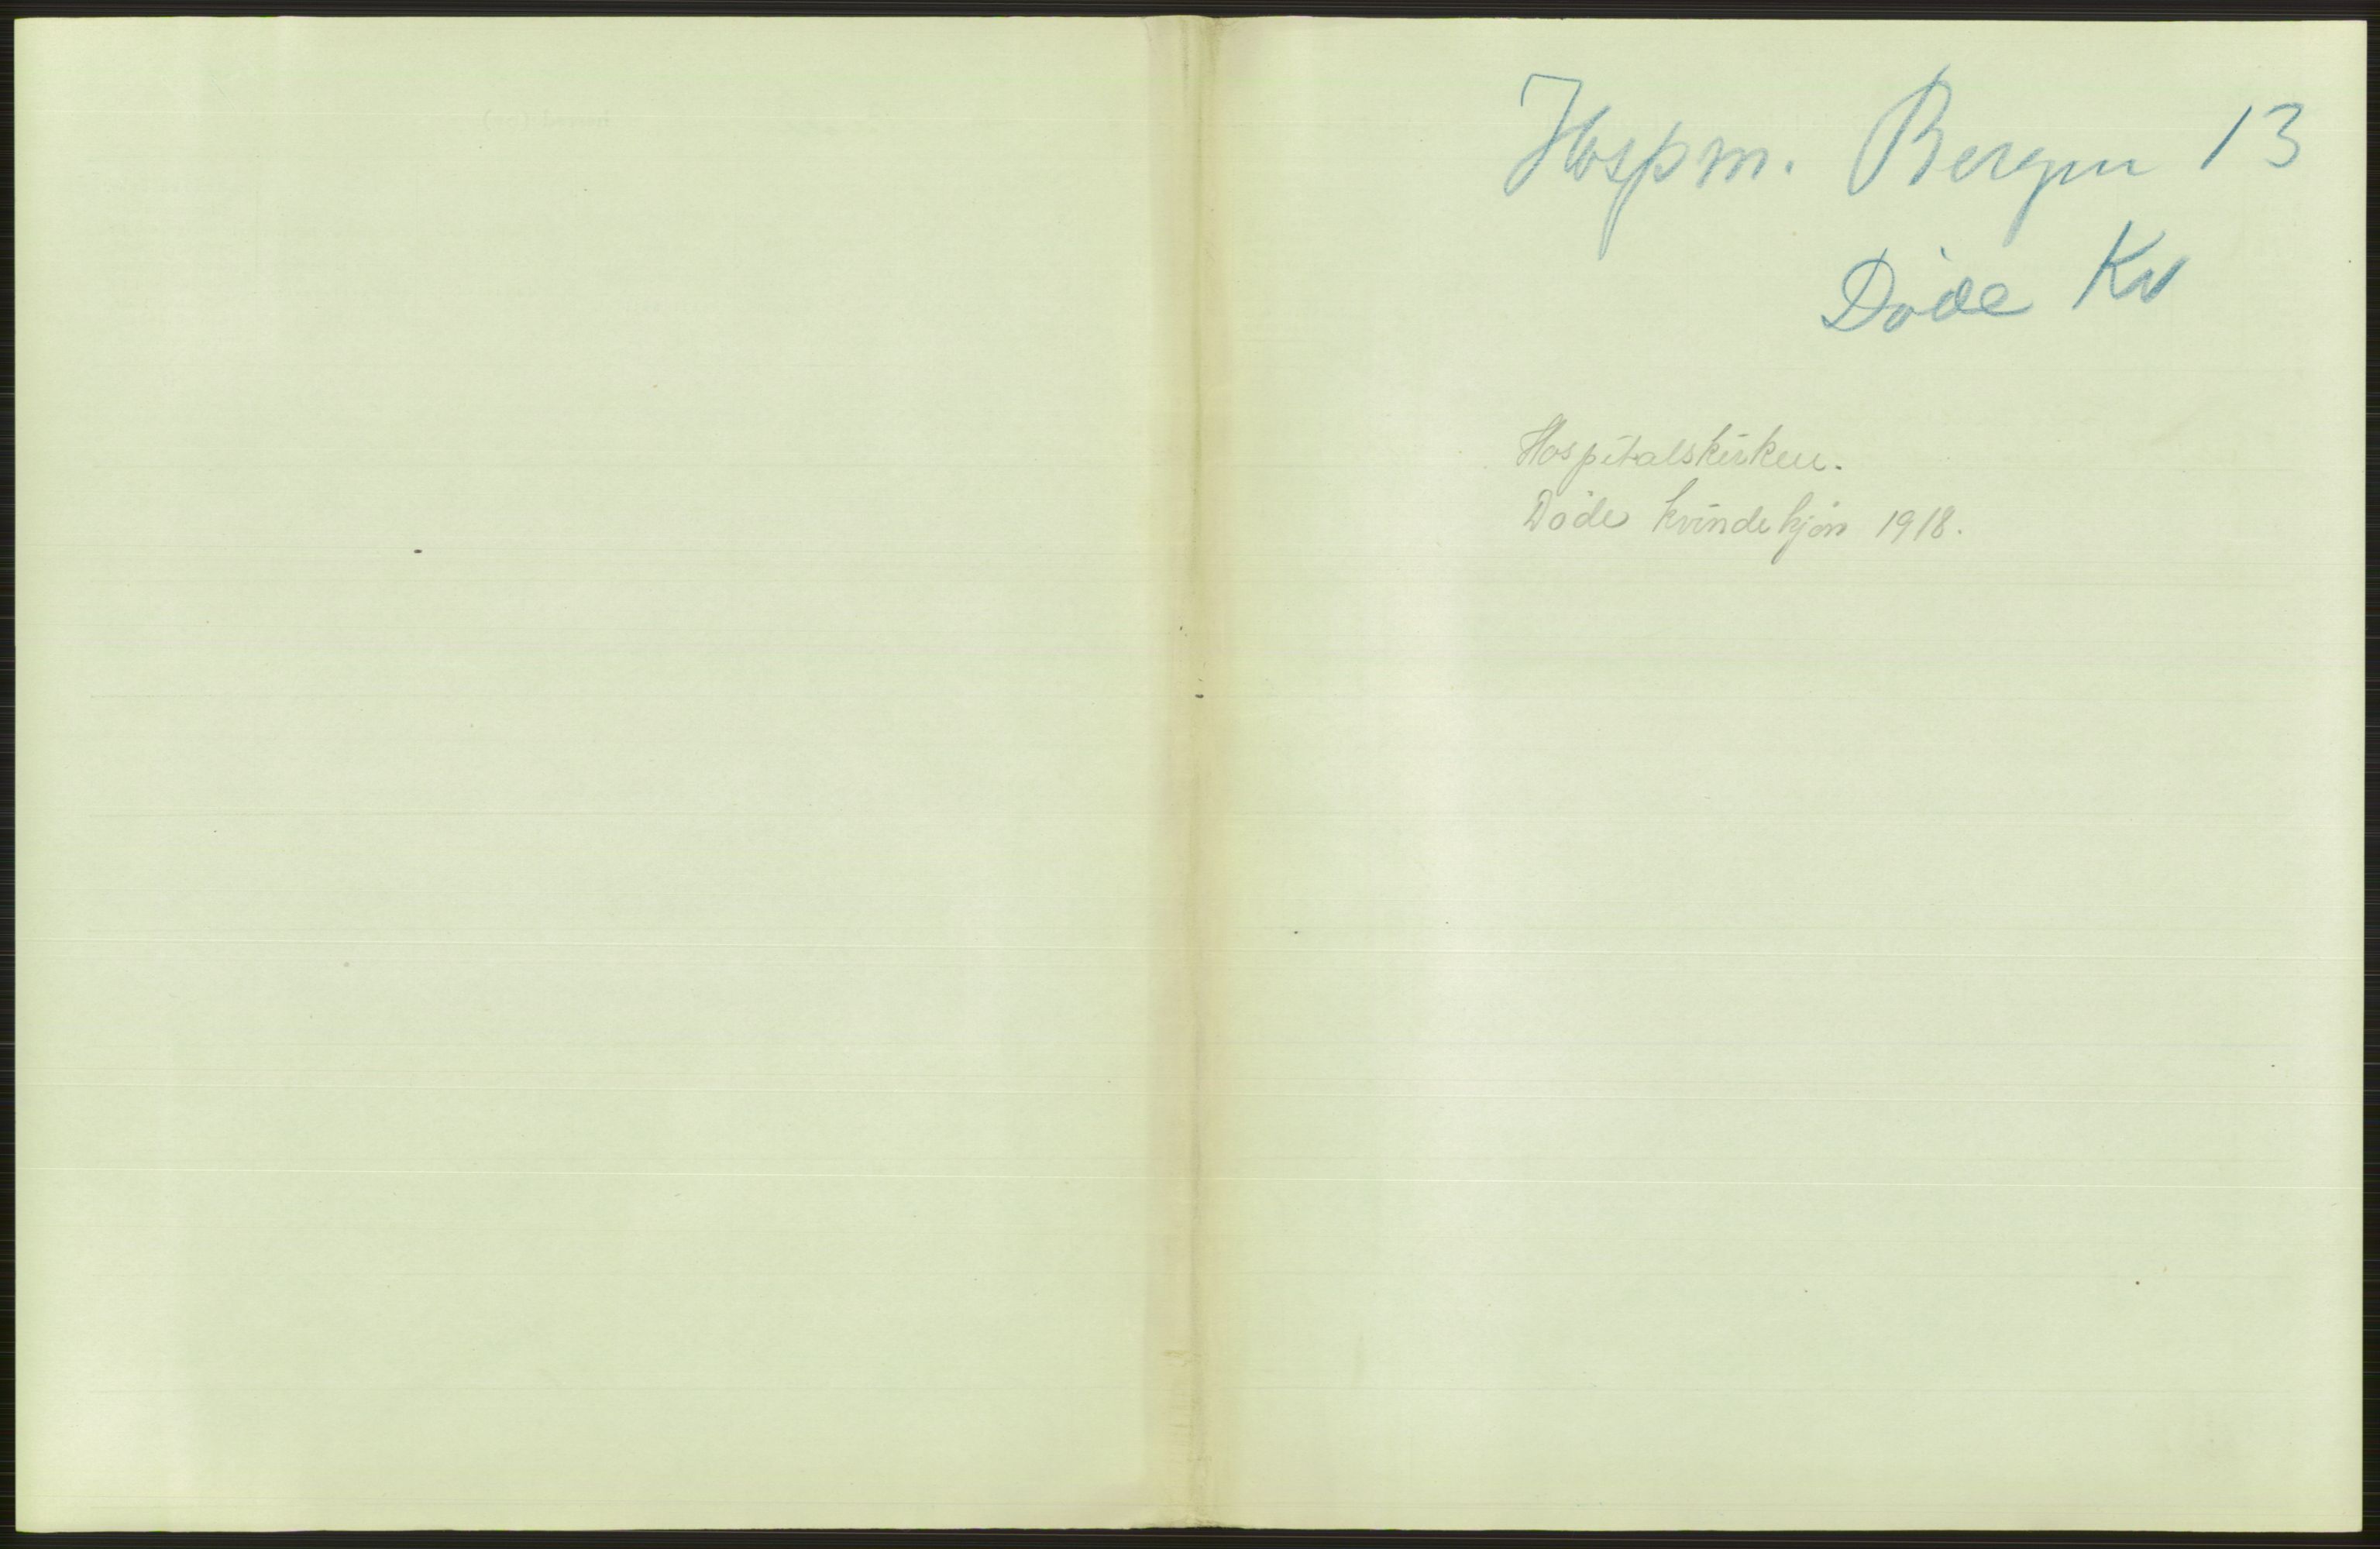 Hospm. Bergen 13
Døde Kv
Hospitalskirken.
Døde kvindekjøn 1918.